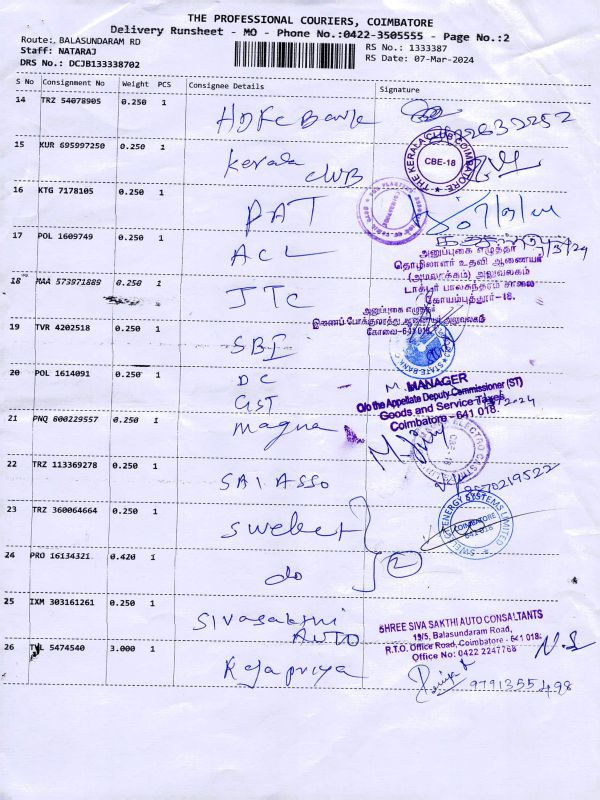 THE PROFESSIONAL COURIERS, COIMBATORE
Delivery Runsheet - MO - Phone No.:0422-3505555 - Page No.:2
Route: BALASUNDARAM RD
Staff: NATARAJ
DRS No.: DCJB133338702
RS No.: 1333387
RS Date: 07-Mar-2024
S No Consignment No Weight PCS Consignee Details Signature
14 TRZ 54078905 0.250 1 HDFC Bank
15 KUR 695997250 0.250 1 Kerala club
THE KERALA CLUB COIMBATORE
CBE-18
16 KTG 7178105 0.250 1 PAT
17 POL 1609749 0.250 1 ACL
அனுப்புகை எழுத்தர்
தொழிலாளர் உதவி ஆணையர்
(அமலாக்கம்) அலுவலகம்
டாக்டர் பாலசுந்தரம் சாலை
கோயம்புத்தூர்-18.
18 MAA 573971889 0.250 1 JTC
அனுப்புகை எழுத்தர்
இணைப் போக்குவரத்து ஆணையர் அலுவலகம்
கோவை-641 018.
19 TVR 4202518 0.250 1 SBI
STATE BANK
20 POL 1614091 0.250 1 DC
GST
MANAGER
O/o the Appellate Deputy Commissioner (ST)
Goods and Service Taxes
Coimbatore - 641 018.
21 PNQ 800229557 0.250 1 magna
22 TRZ 113369278 0.250 1 SAI ASSO
23 TRZ 360064664 0.250 1 swelect
SWELECT ENERGY SYSTEMS LIMITED
COIMBATORE
641 018
24 PRO 16134321 0.420 1 do
2
25 IXM 303161261 0.250 1 SIVASAKTHI
AUTO
SHREE SIVA SAKTHI AUTO CONSALTANTS
19/5, Balasundaram Road,
R.T.O. Office Road, Coimbatore - 641 018.
Office No: 0422 2247768
26 TVL 5474540 3.000 1 Rajapriya